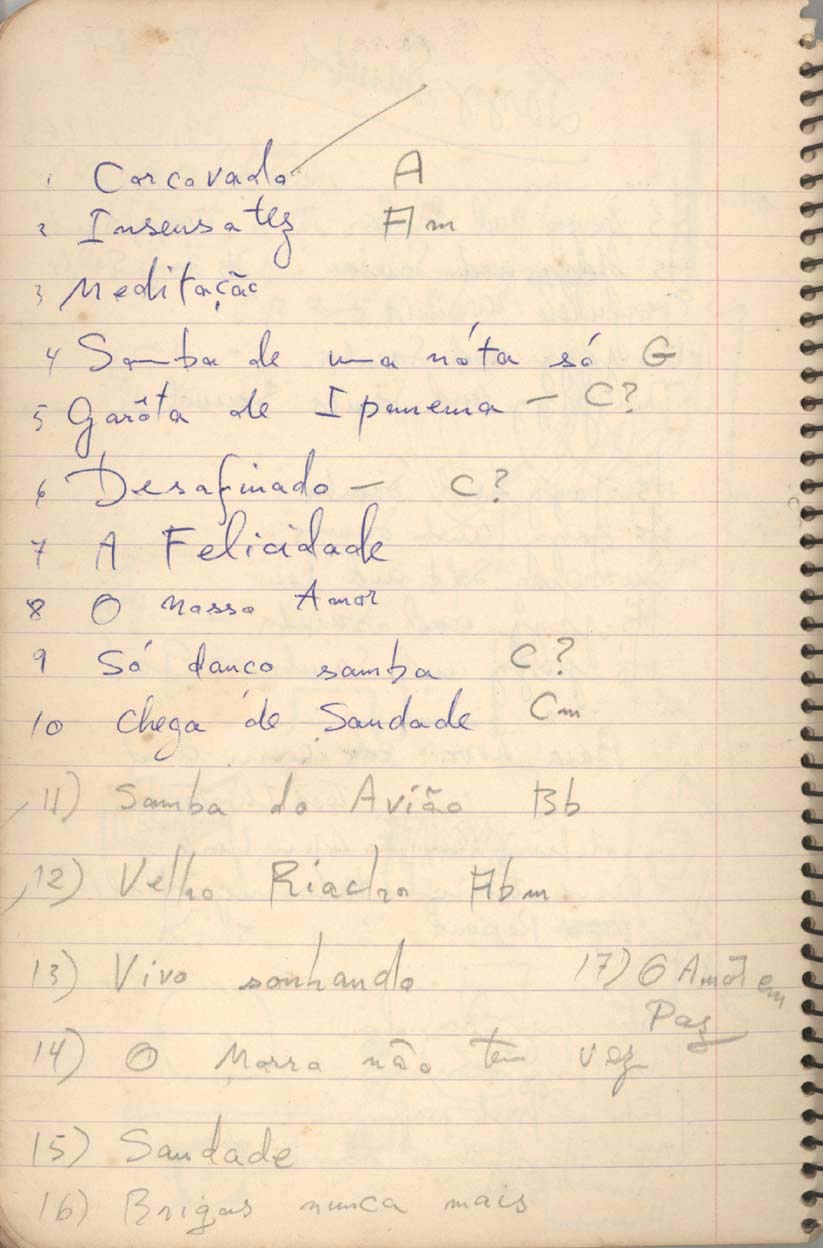 1 Corcovado A
2 Insensatez Am
3 Meditação
4 Samba de uma nóta só G
5 Garôta de Ipanema - C?
6 Desafinado - C?
7 A Felicidade
8 O nosso Amor
9 Só danco samba C?
10 Chega de Saudade Cm
11) Samba do Avião Bb
12) Velho Riacho Abm
13) Vivo sonhando
17) O Amor em
Paz
14) O Morro não tem vez
15) Saudade
16) Brigas nunca mais